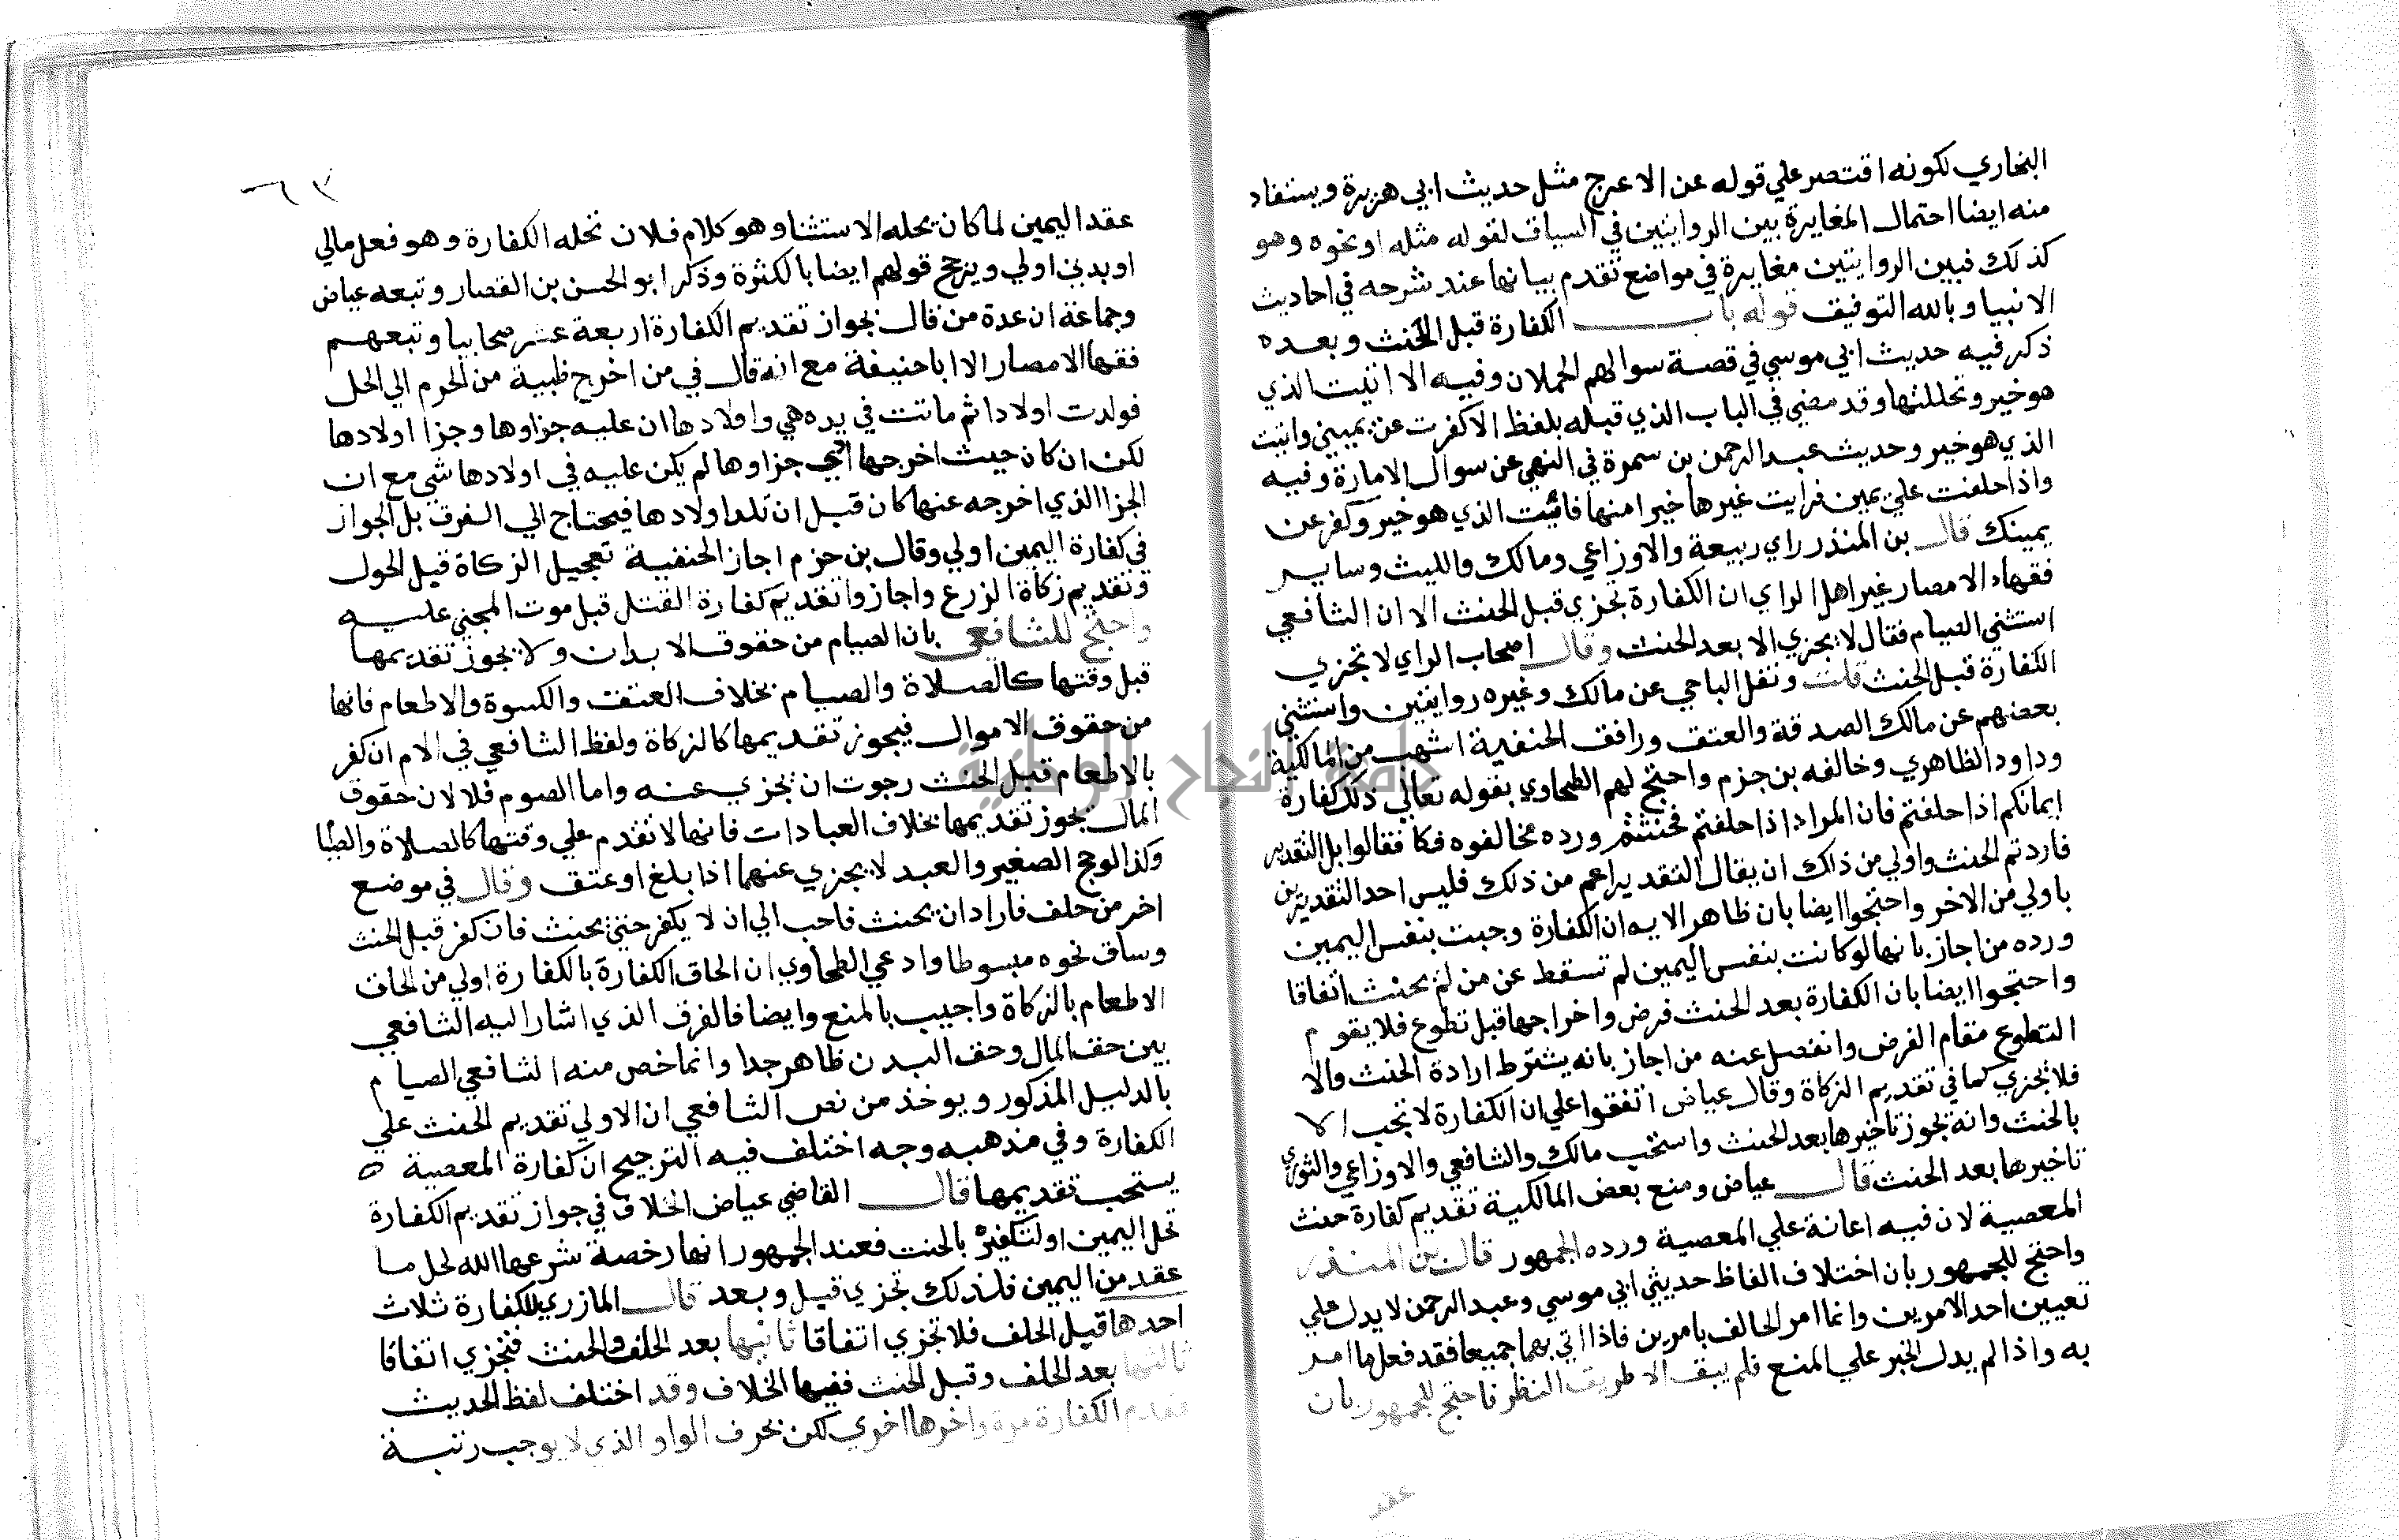 البخاري لكونه اقتصر علي قوله عن الاعرج مثل حديث ابي هريرة ويستفاد
منه ايضا احتمال المغايرة بين الروايتين في السياق لقوله مثله او نحوه وهو
كذلك فبين الروايتين مغايرة في مواضع تقدم بيانها عند شرحه في احاديث
الانبيا وبالله التوفيق قوله باب الكفارة قبل الحنث وبعده
ذكر فيه حديث ابي موسي في قصة سوالهم الحملان وفيه الا اتيت الذي
هو خير وتحللتها وقد مضي في الباب الذي قبله بلفظ الا كفرت عن يميني واتيت
الذي هو خير وحديث عبد الرحمن بن سمرة في النهي عن سوال الامارة وفيه
واذا حلفت علي يمين فرايت غيرها خيرا منها فائت الذي هو خير وكفر عن
يمينك قال بن المنذر راي ربيعة والاوزاعي ومالك والليث وساير
فقهاء الامصار غير اهل الراي ان الكفارة تجزي قبل الحنث الا ان الشافعي
استثني الصيام فقال لا يجزي الا بعد الحنث وقال اصحاب الراي لا تجزي
الكفارة قبل الحنث قلت ونقل الباجي عن مالك وغيره روايتين واستثني
بعضهم عن مالك الصدقة والعتق ووافق الحنفية اشهب من المالكية
وداود الظاهري وخالفه بن حزم واحتج لهم الطحاوي بقوله تعالي ذلك كفارة
ايمانكم اذا حلفتم فان المراد اذا حلفتم فحنثتم ورده مخالفوه فكا فقالوا بل التقدير
فاردتم الحنث واولي من ذلك ان يقال التقدير اعم من ذلك فليس احد التقديرين
باولي من الاخر واحتجوا ايضا بان ظاهر الايه ان الكفارة وجبت بنفس اليمين
ورده من اجاز بانها لو كانت بنفس اليمين لم تسقط عن من لم يحنث اتفاقا
واحتجوا ايضا بان الكفارة بعد الحنث فرض واخراجها قبل تطوع فلا يقوم
التطوع مقام الفرض وانفصل عنه من اجاز بانه يشترط ارادة الحنث والا
فلا تجزي كما في تقديم الزكاة وقال عياض اتفقوا علي ان الكفارة لا تجب الا
بالحنث وانه تجوز تاخيرها بعد الحنث واستحب مالك والشافعي والاوزاعي والثوري
تاخيرها بعد الحنث قال عياض ومنع بعض المالكية تقديم كفارة حنث
المعصية لان فيه اعانة علي المعصية ورده الجمهور قال بن المنذر
واحتج للجمهور بان اختلاف الفاظ حديثي ابي موسي وعبد الرحمن لا يدل علي
تعيين احد الامرين وانما امر الحالف بامرين فاذا اتي بهما جميعا فقد فعل ما امر
به واذا لم يدل الخبر علي المنع فلم يبق الا طريق النظر فاحتج للجمهور بان
عقد
٦٣
عقد اليمين لما كان يحله الاستثنا وهو كلام فلان تحله الكفارة وهو فعل مالي
او بدني اولي ويرجح قولهم ايضا بالكثرة وذكر ابو الحسن بن القصار وتبعه عياض
وجماعة ان عدة من قال بجواز تقديم الكفارة اربعة عشر صحابيا وتبعهم
فقها الامصار الا ابا حنيفة مع انه قال في من اخرج ظبية من الحرم الي الحل
فولدت اولادا ثم ماتت في يده هي واولادها ان عليه جزاوها وجزا اولادها
لكن ان كان حيث اخرجها ادي جزاوها لم يكن عليه في اولادها شي مع ان
الجزا الذي اخرجه عنها كان قبل ان تلد اولادها فيحتاج الي الفرق بل الجواز
في كفارة اليمين اولي وقال بن حزم اجاز الحنفية تعجيل الزكاة قبل الحول
وتقديم زكاة الزرع واجازوا تقديم كفارة القتل قبل موت المجني عليه
واحتج للشافعي بان الصيام من حقوق الابدان ولا يجوز تقديمها
قبل وقتها كالصلاة والصيام بخلاف العتق والكسوة والاطعام فانها
من حقوق الاموال فيجوز تقديمها كالزكاة ولفظ الشافعي في الام ان كفر
بالاطعام قبل الحنث رجوت ان تجزي عنه واما الصوم فلا لان حقوق
المال يجوز تقديمها بخلاف العبادات فانها لا تقدم علي وقتها كالصلاة والصيا
وكذا لو حج الصغير والعبد لا يجزي عنهما اذا بلغ او عتق وقال في موضع
اخر من حلف فاراد ان يحنث فاحب الي ان لا يكفر حتي يحنث فان كفر قبل الحنث
وساق نحوه مبسوطا وادعي الطحاوي ان الحاق الكفارة بالكفارة اولي من الحاق
الاطعام بالزكاة واجيب بالمنع وايضا فالفرق الذي اشار اليه الشافعي
بين حق المال وحق البدن ظاهر جدا وانما خص منه الشافعي الصيام
بالدليل المذكور ويوخذ من نص الشافعي ان الاولي تقديم الحنث علي
الكفارة وفي مذهبه وجه اختلف فيه الترجيح ان كفارة المعصية
يستحب تقديمها قال القاضي عياض الخلاف في جواز تقديم الكفارة
تحل اليمين او لتكفير بالحنث فعند الجمهور انها رخصة شرعها الله لحل ما
عقد من اليمين فلذلك تجزي قبل وبعد قال المازري للكفارة ثلاث
احدها قبل الحلف فلا تجزي اتفاقا ثانيها بعد الحلف والحنث فتجزي اتفاقا
ثالثها بعد الحلف وقبل الحنث ففيها الخلاف وقد اختلف لفظ الحديث
فقدم الكفارة مرة واخرها اخري لكن بحرف الواو الذي لا يوجب رتبة
جامعة النجاح الوطنية